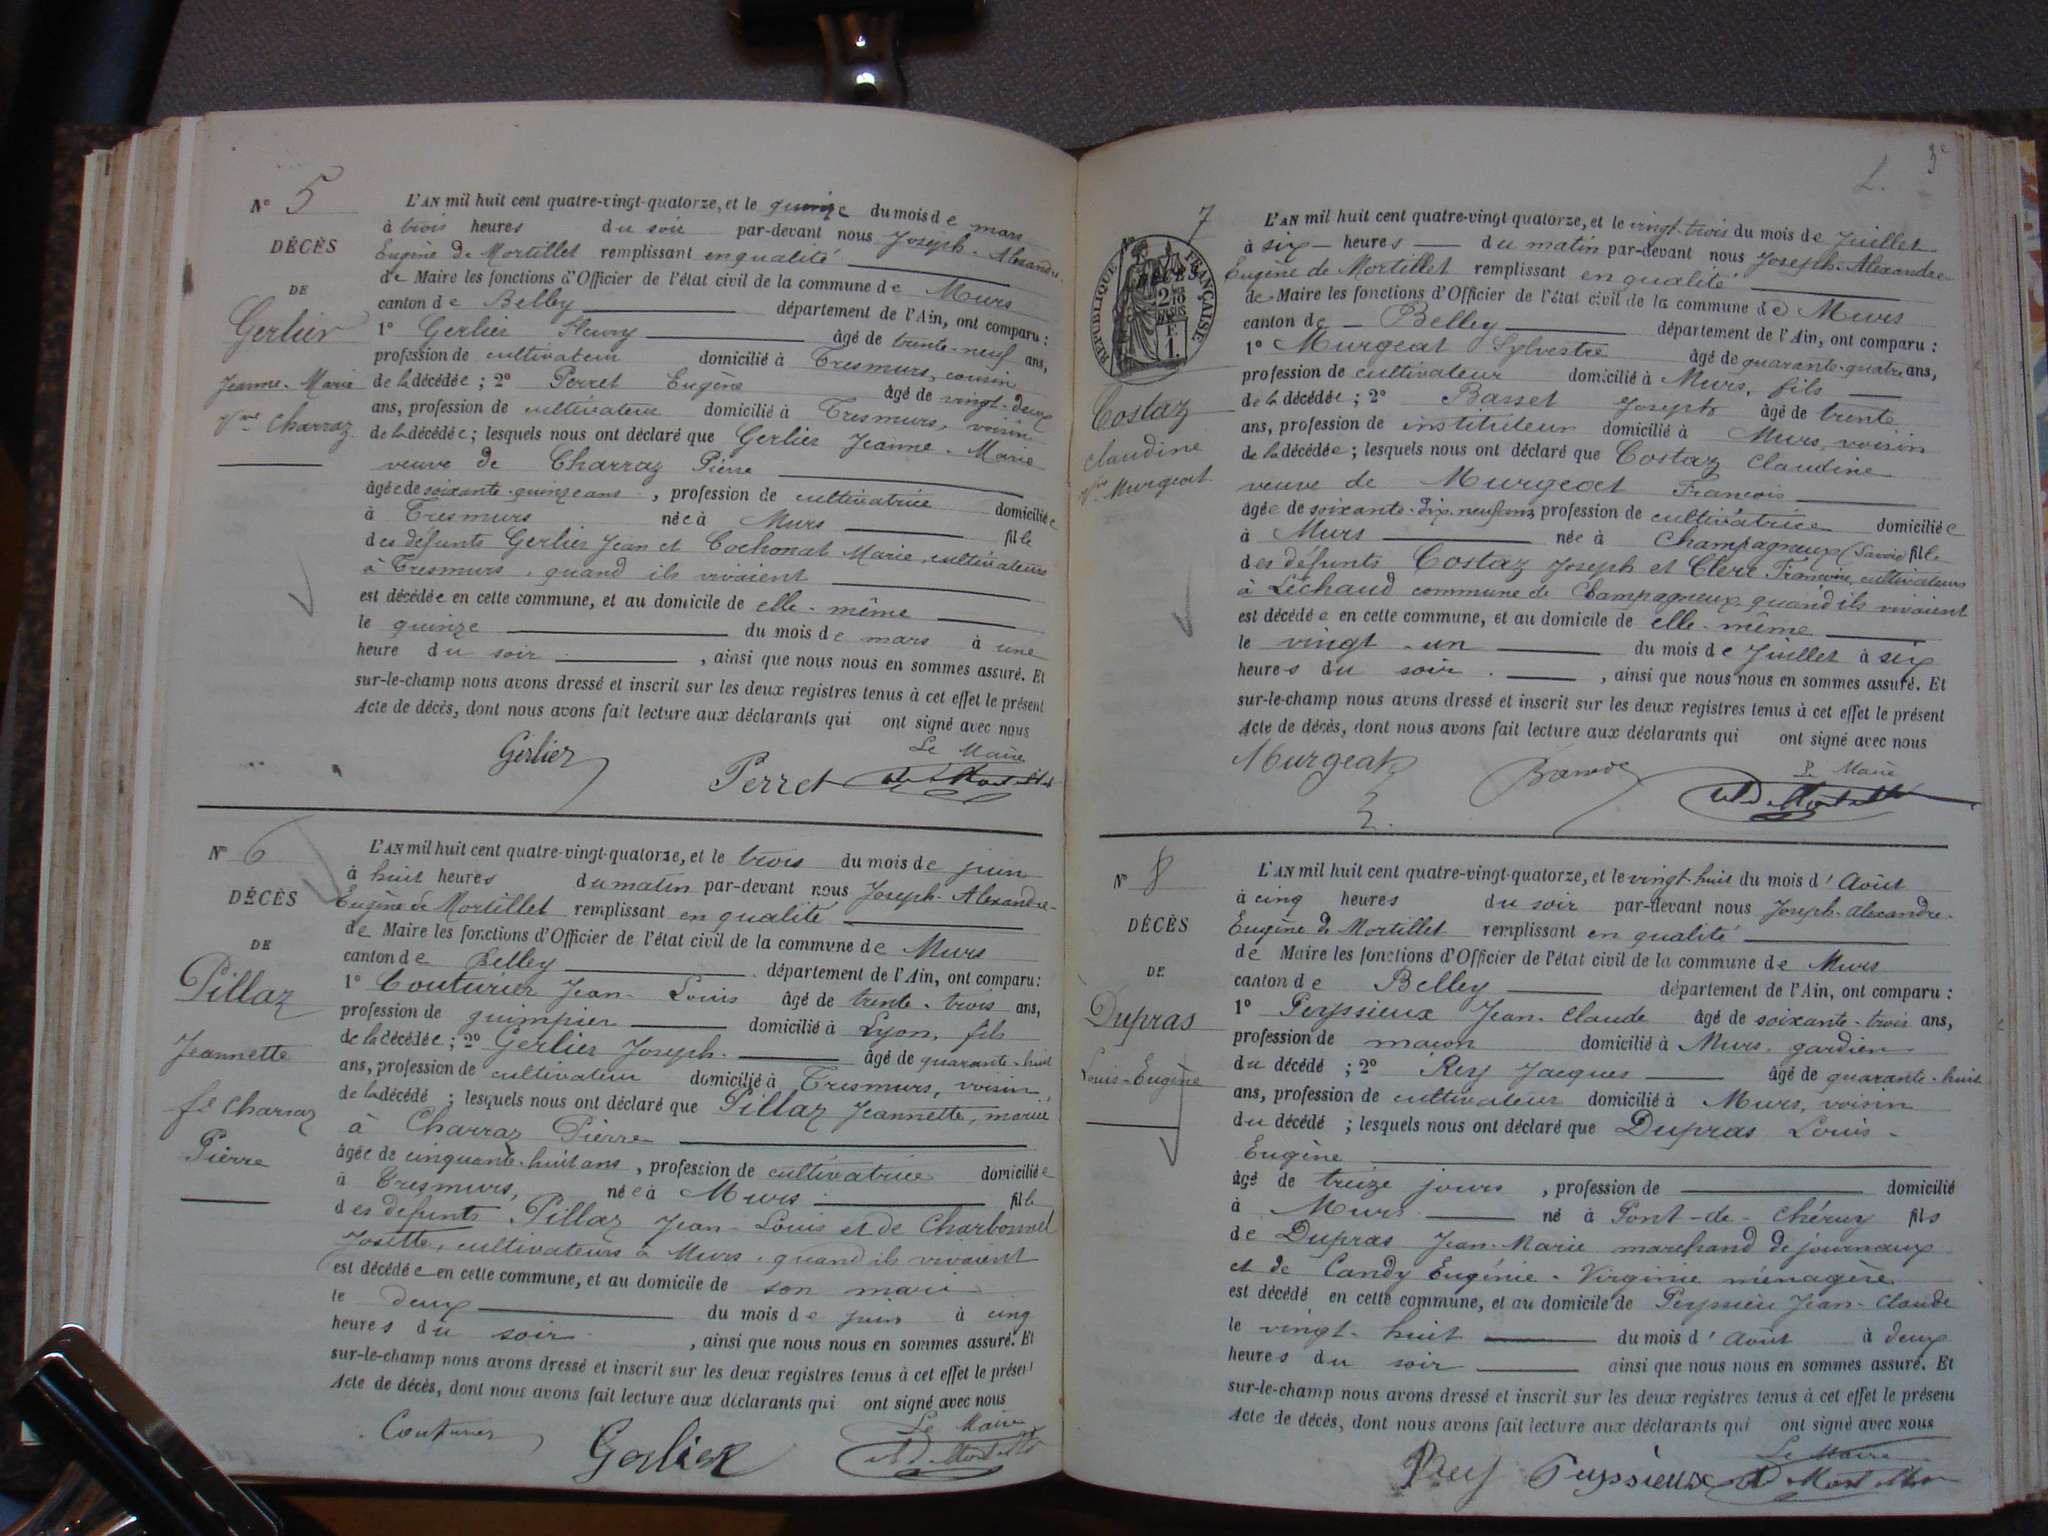 N° 5
DÉCÈS
DE
Gerlier
Jeanne-Marie
Vve Charraz
L'AN mil huit cent quatre-vingt-quatorze, et le quinze du mois de mars
à trois heures du soir par-devant nous Joseph-Alexandre-
Eugène de Mortillet remplissant en qualité
de Maire les fonctions d'Officier de l'état civil de la commune de Murs
canton de Belley département de l'Ain, ont comparu :
1° Gerlier Fleury âgé de trente-neuf ans,
profession de cultivateur domicilié à Tresmurs, cousin
de la décédée ; 2° Perret Eugène âgé de vingt-deux
ans, profession de cultivateur domicilié à Tresmurs, voisin
de la décédée ; lesquels nous ont déclaré que Gerlier Jeanne-Marie
veuve de Charraz Pierre
âgée de soixante-quinze ans, profession de cultivatrice domiciliée
à Tresmurs née à Murs fille
des défunts Gerlier Jean et Cochonat Marie, cultivateurs
à Tresmurs, quand ils vivaient
est décédée en cette commune, et au domicile de elle-même
le quinze du mois de mars à une
heure du soir, ainsi que nous nous en sommes assuré. Et
sur-le-champ nous avons dressé et inscrit sur les deux registres tenus à cet effet le présent
Acte de décès, dont nous avons fait lecture aux déclarants qui ont signé avec nous
Le Maire
Gerlier Perret
N° 6
DÉCÈS
DE
Pillaz
Jeannette
fe Charraz
Pierre
L'AN mil huit cent quatre-vingt-quatorze, et le trois du mois de juin
à huit heures du matin par-devant nous Joseph-Alexandre-
Eugène de Mortillet remplissant en qualité
de Maire les fonctions d'Officier de l'état civil de la commune de Murs
canton de Belley département de l'Ain, ont comparu :
1° Couturier Jean-Louis âgé de trente-trois ans,
profession de guimpier domicilié à Lyon, fils
de la décédée ; 2° Gerlier Joseph âgé de quarante-huit
ans, profession de cultivateur domicilié à Tresmurs, voisin
de la décédé ; lesquels nous ont déclaré que Pillaz Jeannette, mariée
à Charraz Pierre
âgée de cinquante-huit ans, profession de cultivatrice domiciliée
à Tresmurs, née à Murs fille
des defunts Pillaz Jean-Louis et de Charbonnel
Josette, cultivateurs à Murs, quand ils vivaient
est décédée en cette commune, et au domicile de son mari
le deux du mois de juin à cinq
heures du soir, ainsi que nous nous en sommes assuré. Et
sur-le-champ nous avons dressé et inscrit sur les deux registres tenus à cet effet le présent
Acte de décès, dont nous avons fait lecture aux déclarants qui ont signé avec nous
Le Maire
Couturier Gerlier
3e
7
RÉPUBLIQUE FRANÇAISE
Costaz
Claudine
Vve Murgeat
L'AN mil huit cent quatre-vingt quatorze, et le vingt-trois du mois de Juillet
à six heures du matin par-devant nous Joseph-Alexandre-
Eugène de Mortillet remplissant en qualité
de Maire les fonctions d'Officier de l'état civil de la commune de Murs
canton de Belley département de l'Ain, ont comparu :
1° Murgeat Sylvestre âgé de quarante-quatre ans,
profession de cultivateur domicilié à Murs, fils
de la décédée ; 2° Basset Joseph âgé de trente
ans, profession de instituteur domicilié à Murs, voisin
de la décédée ; lesquels nous ont déclaré que Costaz Claudine
veuve de Murgeat François
âgée de soixante-dix-neuf ans, profession de cultivatrice domiciliée
à Murs née à Champagneux (Savoie) fille
des défunts Costaz Joseph et Clerc Francoise, cultivateurs
à Léchaud commune de Champagneux, quand ils vivaient
est décédée en cette commune, et au domicile de elle-même
le vingt-un du mois de Juillet à six
heures du soir, ainsi que nous nous en sommes assuré. Et
sur-le-champ nous avons dressé et inscrit sur les deux registres tenus à cet effet le présent
Acte de décès, dont nous avons fait lecture aux déclarants qui ont signé avec nous
Maire
Murgeat
N° 8
DÉCÈS
DE
Dupras
Louis-Eugène
L'AN mil huit cent quatre-vingt-quatorze, et le vingt-huit du mois d'Août
à cinq heures du soir par-devant nous Joseph-Alexandre-
Eugène de Mortillet remplissant en qualité
de Maire les fonctions d'Officier de l'état civil de la commune de Murs
canton de Belley département de l'Ain, ont comparu :
1° Peyssieux Jean-Claude âgé de soixante-trois ans,
profession de macon domicilié à Murs, gardien
du décédé ; 2° Rey Jacques âgé de quarante-huit
ans, profession de cultivateur domicilié à Murs, voisin
du décédé ; lesquels nous ont déclaré que Dupras Louis-
Eugène
âgé de treize jours, profession de domicilié
à Murs né à Pont-de-Chéruy fils
de Dupras Jean-Marie marchand de journaux
et de Candy Eugénie-Virginie ménagère
est décédé en cette commune, et au domicile de Peyssieu Jean-Claude
le vingt-huit du mois d'Août à deux
heures du soir ainsi que nous nous en sommes assuré. Et
sur-le-champ nous avons dressé et inscrit sur les deux registres tenus à cet effet le présent
Acte de décès, dont nous avons fait lecture aux déclarants qui ont signé avec nous
Le Maire
Rey Peyssieux